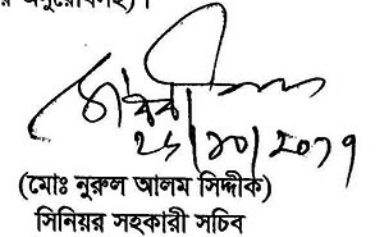 অনুরোধসহ)।
২৫/১০/২০১৭
(মোঃ নুরুল আলম সিদ্দীক)
সিনিয়র সহকারী সচিব